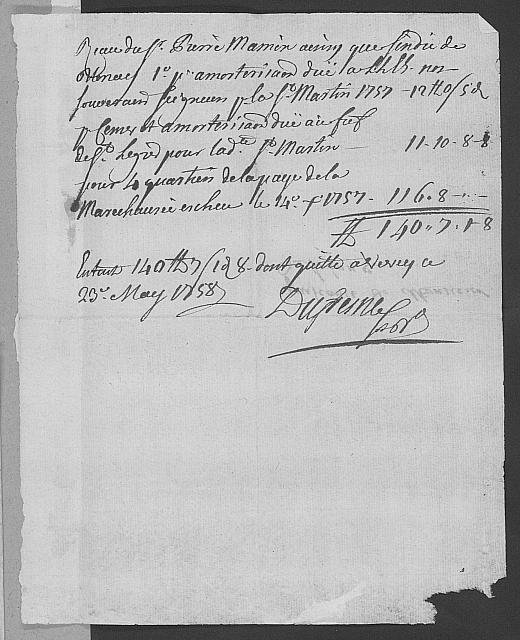 Receu du Sr. Pierre Mamin ainsy que sindic de
1o. pr. amorterisaõn duë a LLEE. nos
Souverains Seigneurs pr. la St. Martin 1757 - 12 ₶ 0 / 5 d
pr. Censes et amorterisaõn duë au fief
de St. Legrê pour ladte. St. Martin — 11-10-8-8
pour 4 quartiers de la paye de la
Marechaussée escheu le 14e. 1757 - 116.8-..-
₶ 140..7.1-8
En tout 140 ₶ 7 / 1 d 8 dont quitte à Vevey ce
23e. May 1758
Dufresne